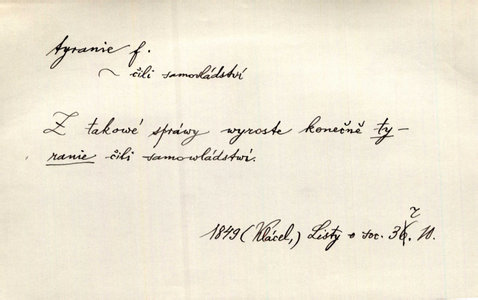 tyranie f.
~ čili samovládství
Z takowé správy wyroste konečně ty-
ranie čili samowládstwí.
1849 (Klácel,) Listy o soc. 37. 10.